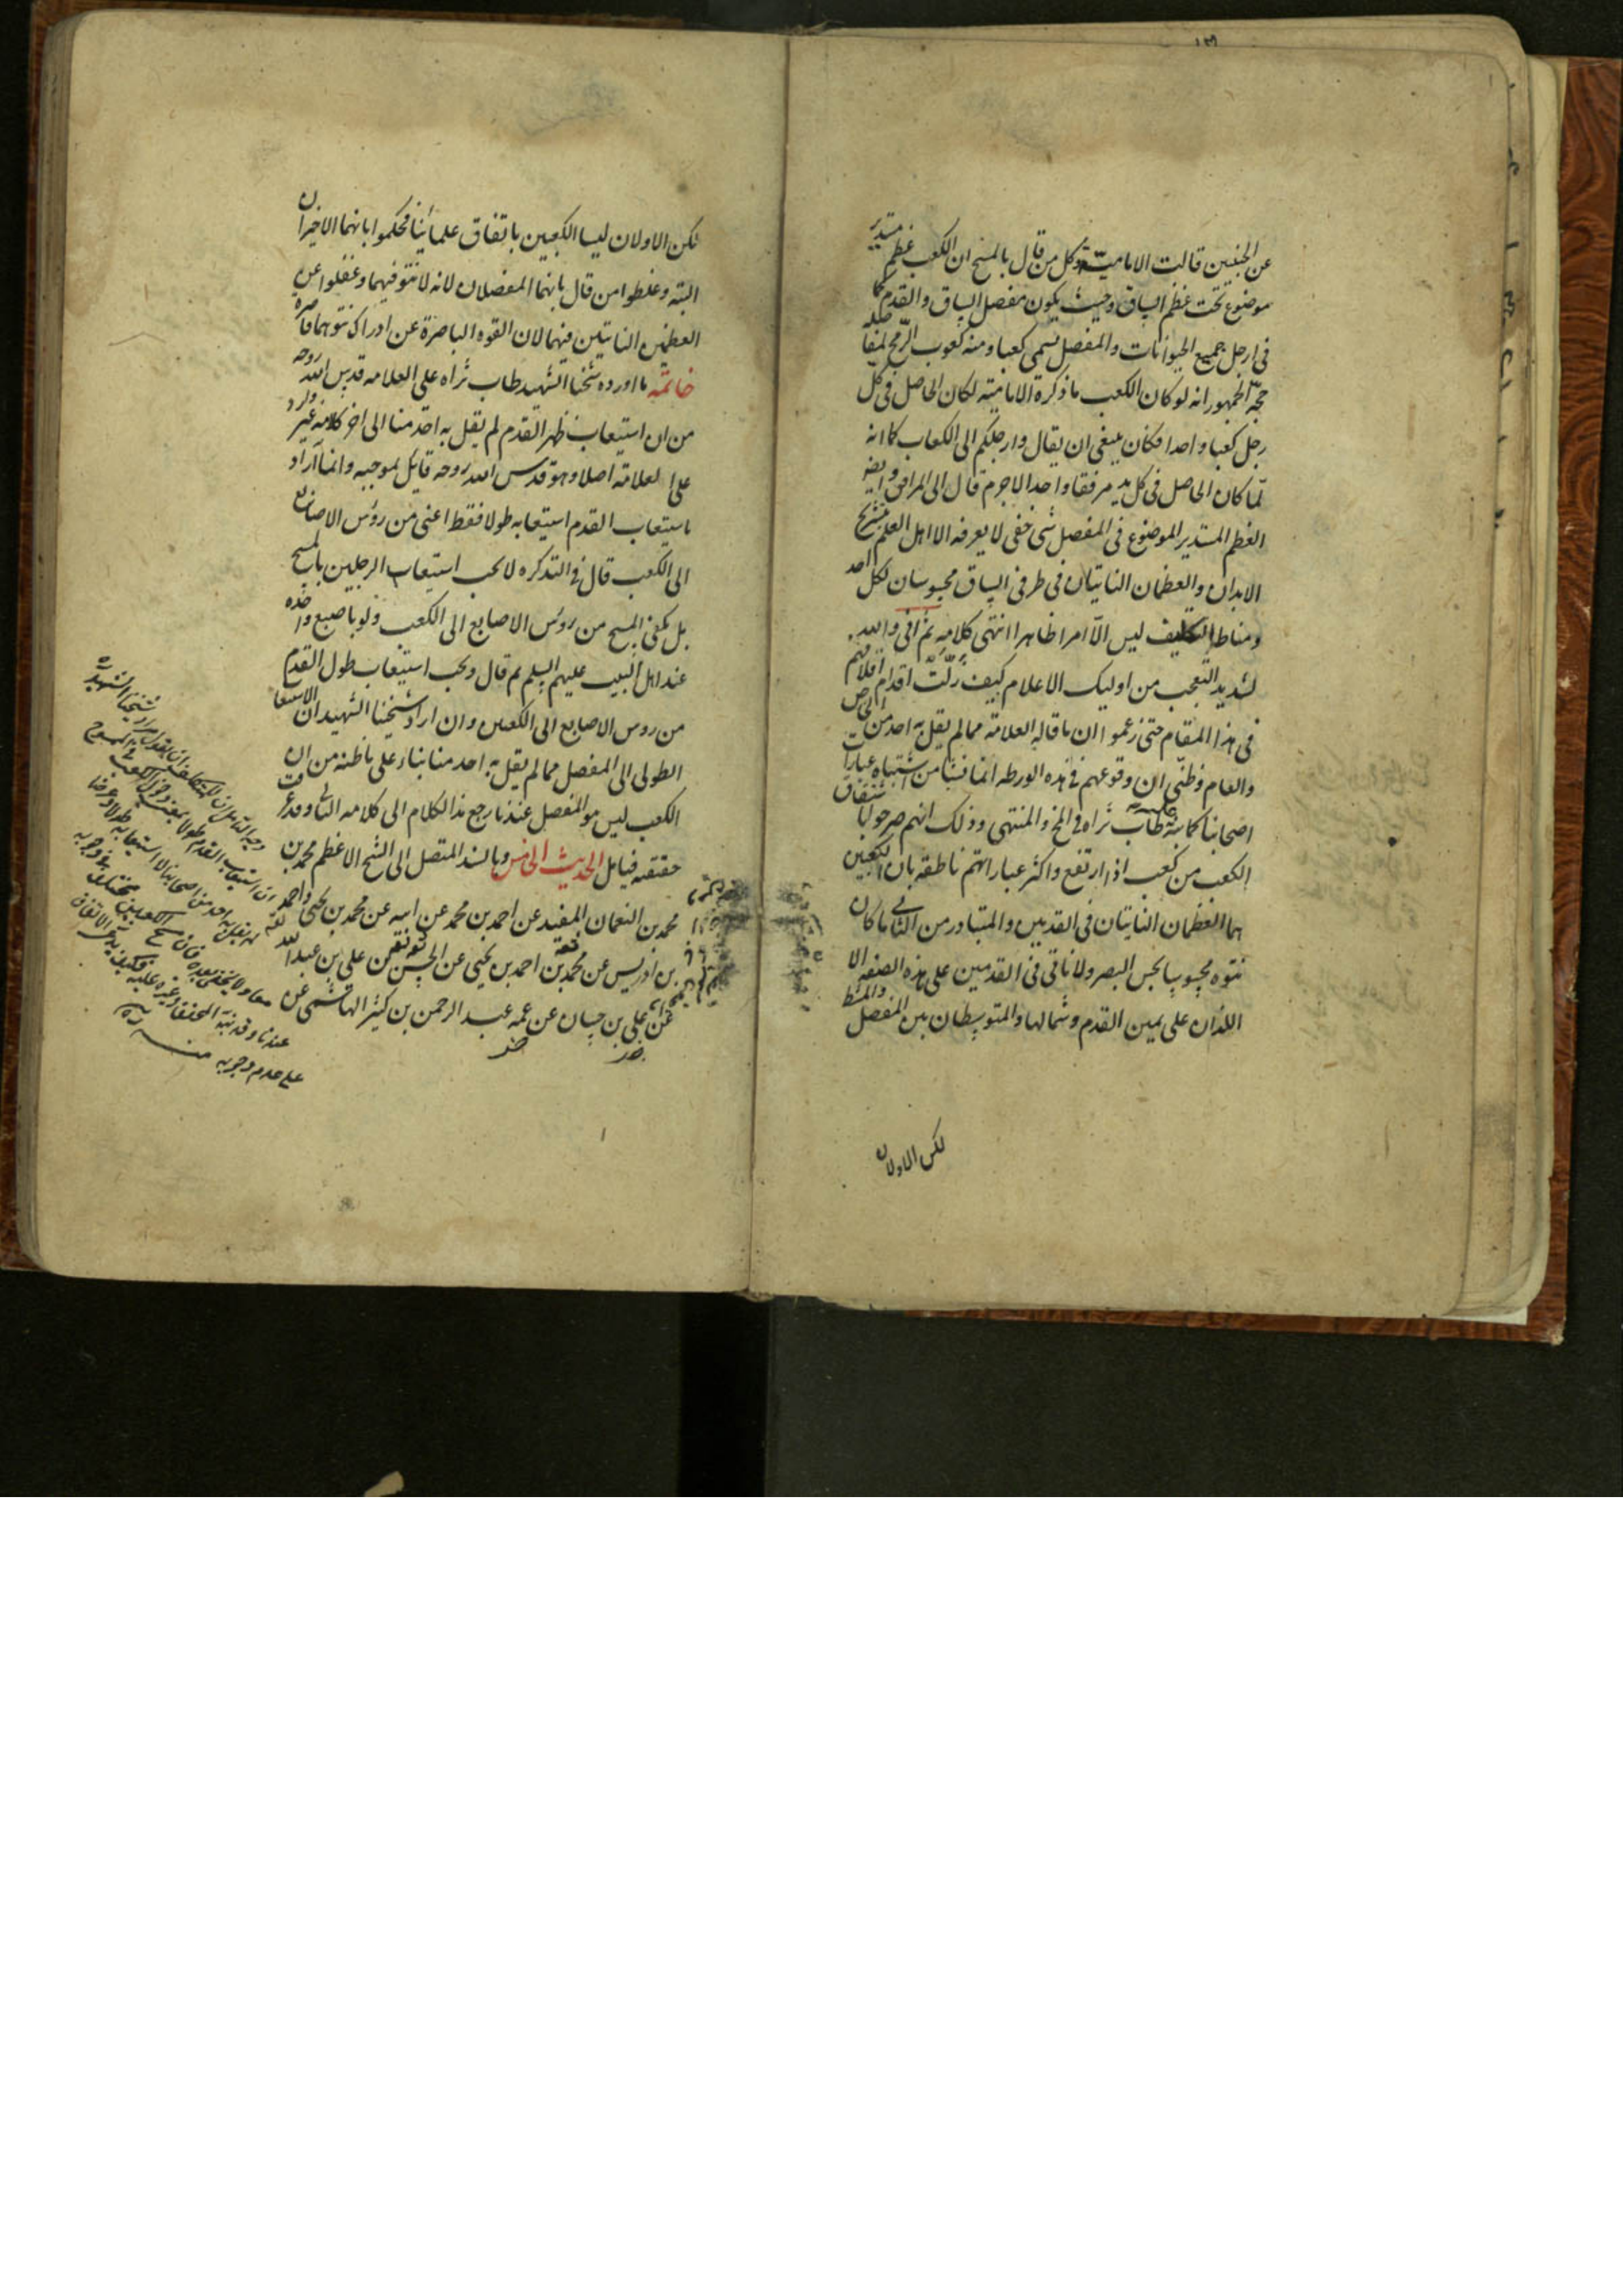 عن الجنبين قالت الامامية وكل من قال بالمسح ان الكعب عظم مستدير
موضوع تحت عظم الساق وحيث يكون مفصل الساق والقدم كما
فى ارجل جميع الحيوانات والمفصل يسمى كعبا ومنه كعوب الرمح لمفاصله
حجة الجمهور انه لو كان الكعب ما ذكره الامامية لكان الحاصل فى كل
رجل كعبا واحدا فكان ينبغى ان يقال وارجلكم الى الكعاب كما انه
لما كان الحاصل فى كل يد مرفقا واحدا لاجرم قال الى المرافق وايضا
العظم المستدير الموضوع فى المفصل شى خفى لا يعرفه الا اهل العلم بتشريح
الابدان والعظمان الناتيان فى طرفى الساق محسوسان لكل احد
ومناط التكليف ليس الا امرا ظاهرا انتهى كلامه ثم انى والله
لشديد التعجب من اوليك الاعلام كيف زلت اقدام اقلامهم
فى هذا المقام حتى زعموا ان ما قاله العلامة مما لم يقل به احد من الخاص
والعام وظنى ان وقوعهم فى هذه الورطه انما نشا من اشتباه عبارات
اصحابنا كما نبه عليه طاب ثراه فى المخ والمنتهى وذلك انهم صرحوا باشتقاق
الكعب من كعب اذا ارتفع واكثر عباراتهم ناطقه بان الكعبين
هما العظمان الناتيان فى القدمين والمتبادر من الناتى ما كان
نتوه محسوسا بحس البصر ولا ناتى فى القدمين على هذه الصفه الا
اللذان على يمين القدم وشمالها والمتوسطان بين المفصل والمشط
لكن الاولان
لكن الاولان ليسا الكعبين باتفاق علمائنا فحكموا بانهما الاخيران
البته وغلطوا من قال بانهما المفصلان لانه لا نتو فيهما وغفلوا عن
العظمين الناتيين فيهما لان القوه الباصرة عن ادراك نتوهما قاصرة
خاتمه ما اورده شيخنا الشهيد طاب ثراه على العلامه قدس الله روحه
من ان استيعاب ظهر القدم لم يقل به احد منا الى اخر كلامه غير وارد
على العلامة اصلا وهو قدس الله روحه قايل بموجبه وانما اراد
باستيعاب القدم استيعابه طولا فقط اعنى من رؤس الاصابع
الى الكعب قال فى التذكره لا يجب استيعاب الرجلين بالمسح
بل يكفى المسح من رؤس الاصابع الى الكعب ولو باصبع واحده
عند اهل البيت عليهم السلم ثم قال ويجب استيعاب طول القدم
من روس الاصابع الى الكعبين وان اراد شيخنا الشهيد ان الاستيعاب
الطولى الى المفصل مما لم يقل به احد منا بناء على ما ظنه من ان
الكعب ليس هو المفصل عندنا رجع هذا الكلام الى كلامه الثانى وقد عرفت
حقيقته فتامل الحديث الخامس وبالسند المتصل الى الشيخ الاعظم محمد بن
محمد بن النعمان المفيد عن احمد بن محمد عن ابيه عن محمد بن يحيى واحمد
بن ادريس عن محمد بن احمد بن يحيى عن الحسن بن على بن عبد الله
عن على بن حسان عن عمه عبد الرحمن بن كثير الهاشمى عن
عندنا وقد نبه المحقق وغيره عليه
على عدم وجوبه منه ره